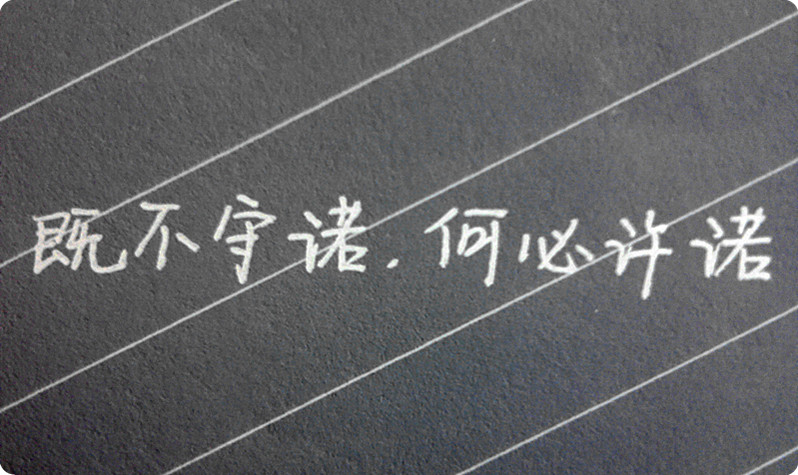 既不守诺.何必许诺